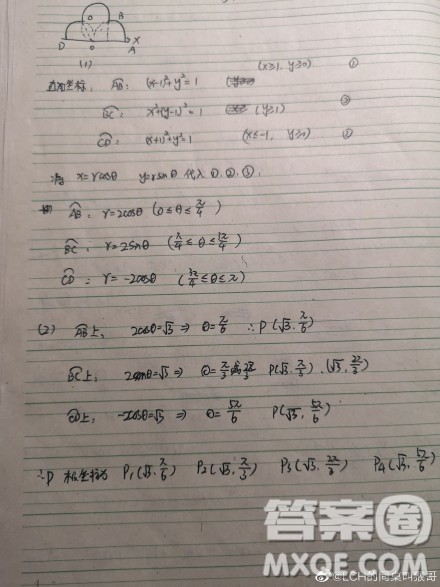 O B
D O A X
(1)
直角坐标, AB: (x-1)²+y²=1 (x≥1, y≥0) ①
BC: x²+(y-1)²=1 (y≥1) ②
CD: (x+1)²+y²=1 (x≤-1, y≥0) ③
将 x=rcosθ y=rsinθ 代入①,②,③,
AB: r=2cosθ (0≤θ≤π/4)
BC: r=2sinθ (π/4≤θ≤3π/4)
CD: r=-2cosθ (3π/4≤θ≤π)
(2) AB上, 2cosθ=√3 ⇒ θ=π/6 ∴P(√3,π/6)
BC上, 2sinθ=√3 ⇒ θ=π/3或2π/3 P(√3,π/3),(√3,2π/3)
CD上, -2cosθ=√3 ⇒ θ=5π/6 P(√3,5π/6)
∴P 极坐标为 P₁(√3,π/6) P₂(√3,π/3) P₃(√3,2π/3) P₄(√3,5π/6)
答案圈
MXQE.COM